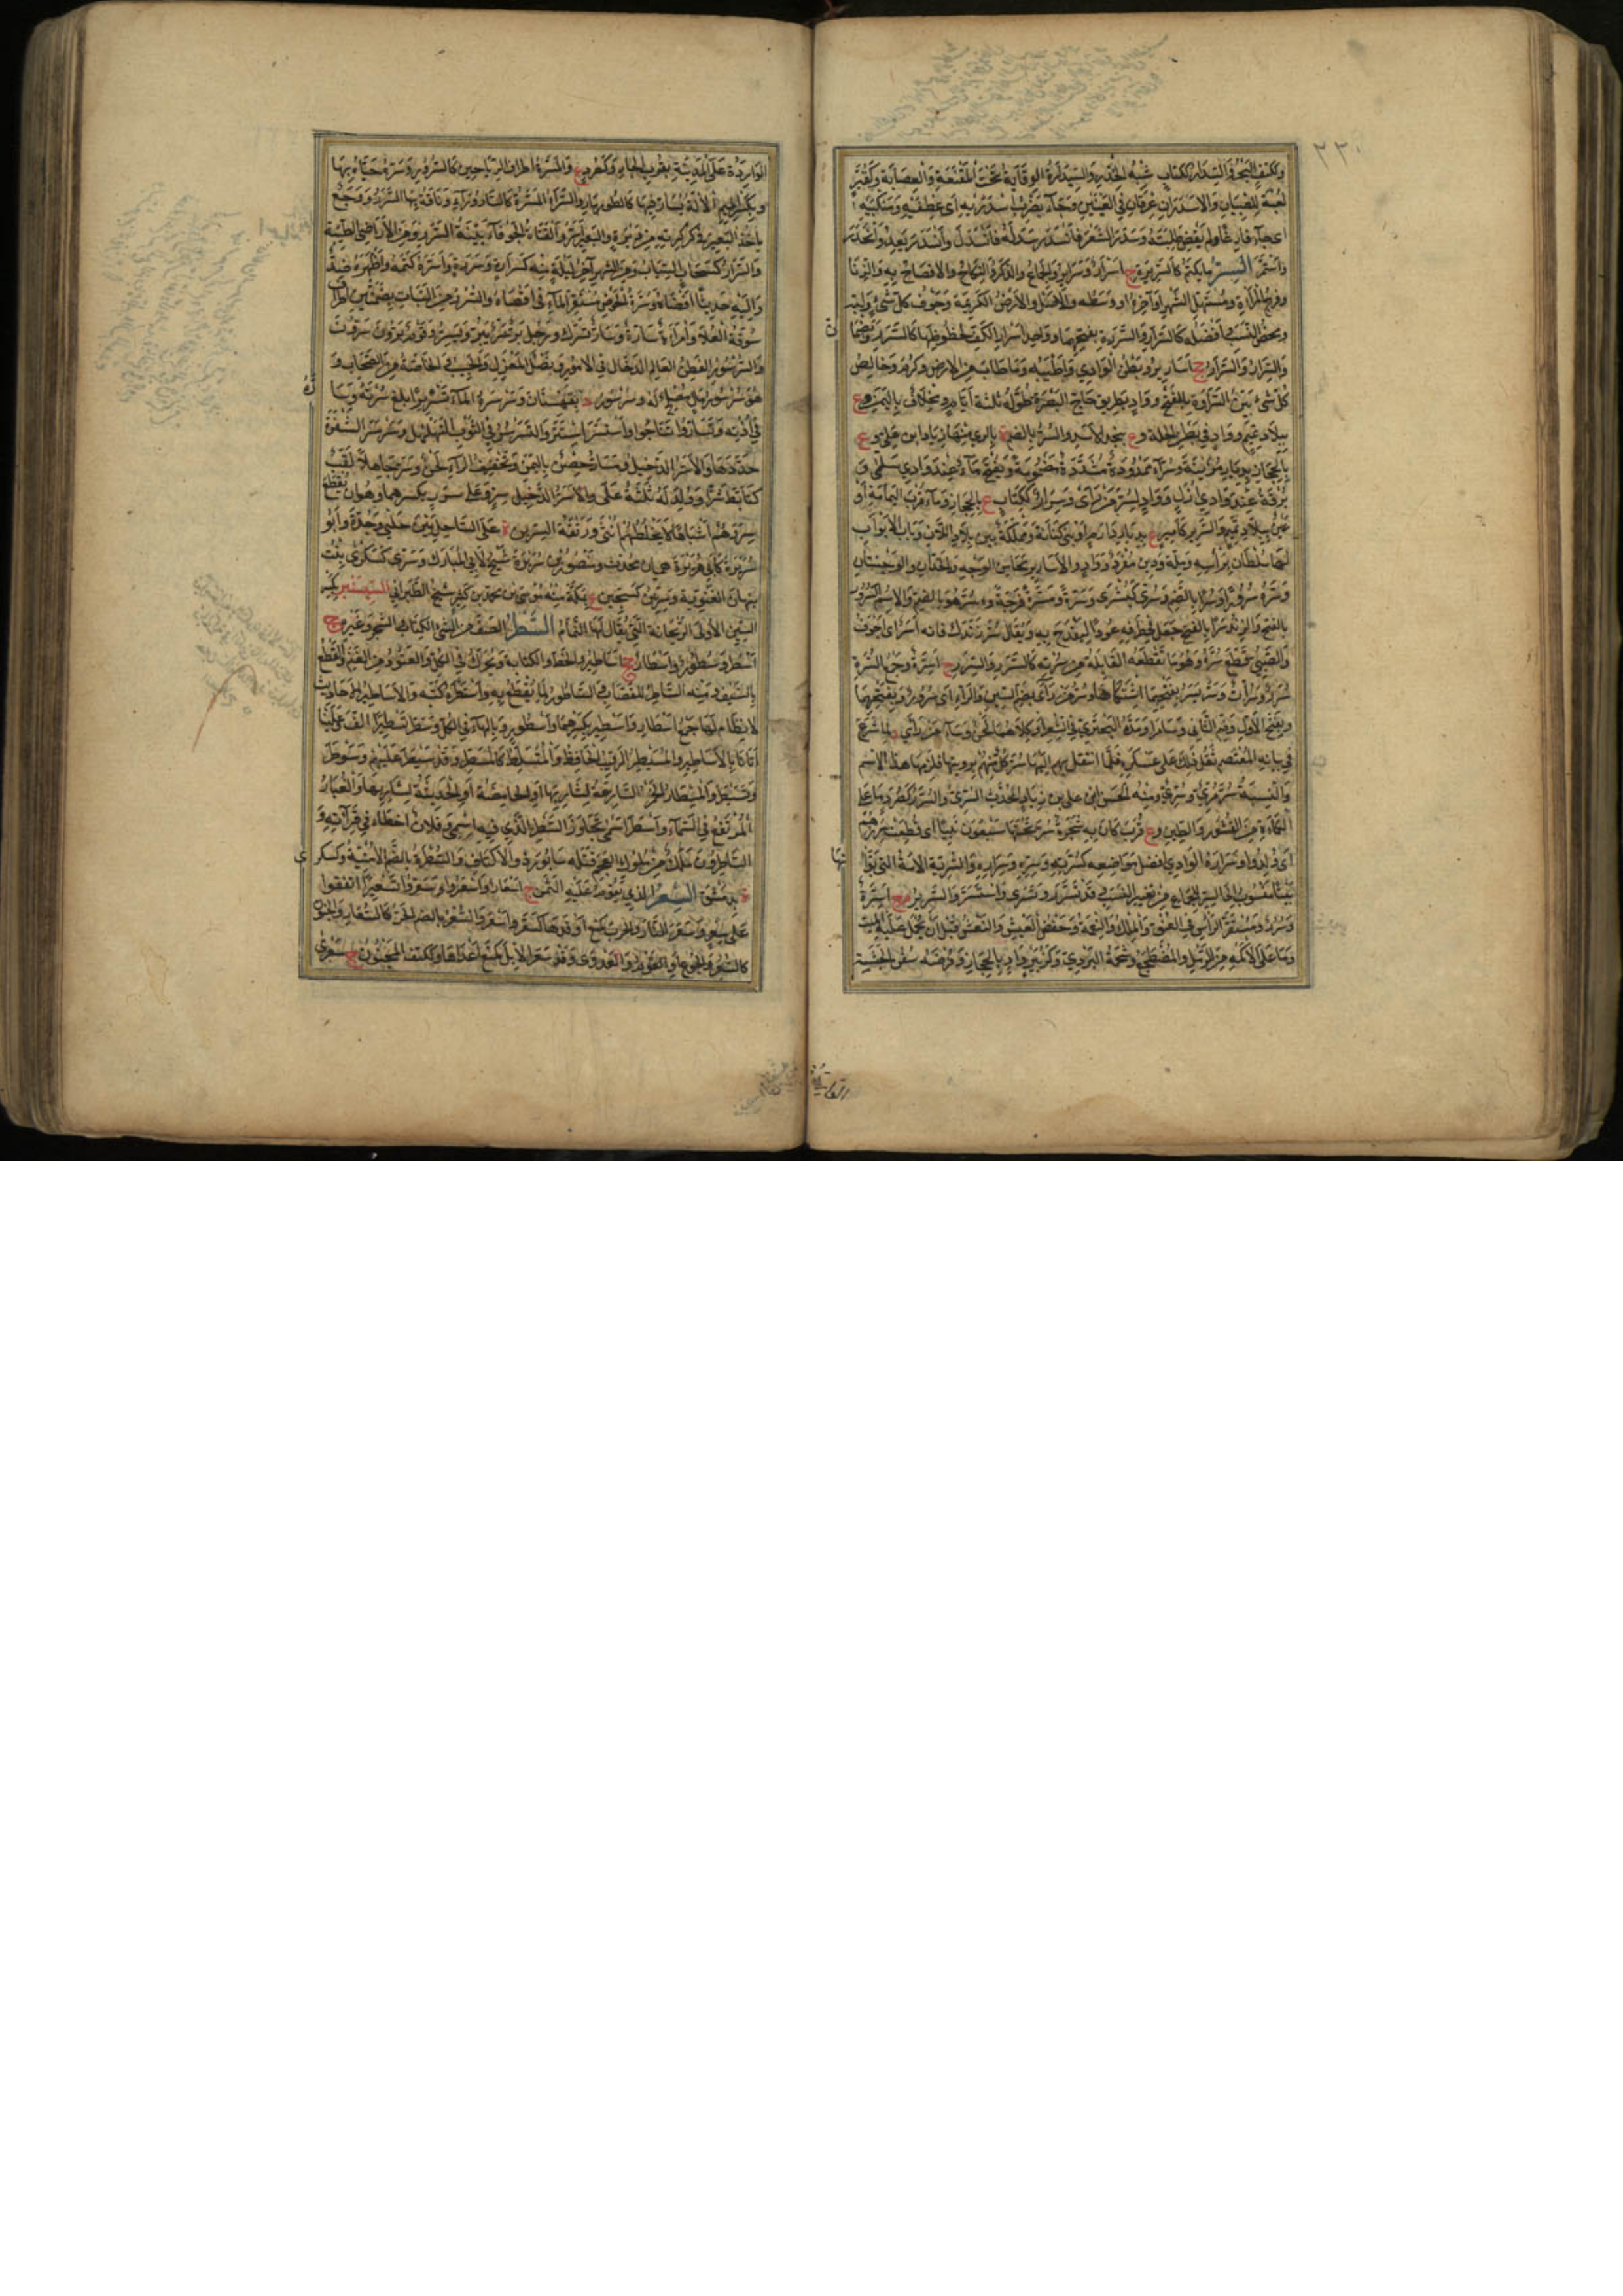 ٢٢٠
وككتف البحر والسدار ككتاب شبه الخدر والسيدارة الوقاية تحت المقنعة والعصابة وكقبر
لعبة للصبيان والاسدران عرقان في العينين وجاء يضرب اسدريه اى عطفيه ومنكبيه
اى جاء فارغا ولم يقض طلبته وسدر الشعر فانسدر سدله فانسدل وانسدر يعدو انحدر
واستمر السر ما يكتم كالسريرة ج اسرار وسراير والجماع والذكر والنكاح والافصاح به والزنا
وفرج المرأة ومستهل الشهر او آخره او وسطه والاصل والارض الكريمة وجوف كل شئ ولبه
ومحض النسب وافضله كالسرار والسرارة بفتحهما وواحد اسرار الكف لخطوطها كالسرر ويضما
والسرار والسرار جج اسارير وبطن الوادي واطيبه وما طاب من الارض وكرم وخالص
كل شئ بين السرارة بالفتح وواد بطريق حاج البصرة طوله ثلثة ايام ومخلاف باليمن وع
ببلاد تميم وواد في بطن الحلة وع بنجد لاسد والسر بالضم ة بالري منها زياد بن على وع
بالحجاز بديار مزينة وسراء ممدودة مشددة مضمومة ويفتح ماء عند وادي سلمى و
برقة عند وادي ارل وواد لسر من رأى وسرار ككتاب ع بالحجاز وماء قرب اليمامة أو
عين ببلاد تميم والسرير كامير ع بديار بني دارم او بني كنانة ومملكة بين بلاد اللان وباب الابواب
لها سلطان برأسه وملة ودين مفرد وواد والاسارير محاسن الوجه والخدان والوجنتان
وسره سرورا وسرا بالضم وسرى كبشرى وتسرة ومسرة فرحه وسر هو بالضم والاسم السرور
بالفتح والزند سرا بالفتح جعل في طرفه عودا ليقدح به ويقال سر زندك فانه اسر اى اجوف
والصبي قطع سره وهو ما تقطعه القابلة من سرته كالسرر والسرر ج اسرة وجمع السرة
سرر وسرات وسر يسر بفتحهما اشتكاها وسر من رأى بضم السين والراء اى سرور وبفتحهما
وبفتح الاول وضم الثاني وسامرا ومده البحتري في الشعر او كلاهما لحن وساء من رأى د لما شرع
في بنائه المعتصم ثقل ذلك على عسكره فلما انتقل بهم اليها سر كل منهم برؤيتها فلزمها هذا الاسم
والنسبة سرمري وسري ومنه الحسن بن علي بن زياد المحدث السري والسرر كصرد ما على
الكمأة من القشور والطين وع قرب كان به شجرة سر تحتها سبعون نبيا اى قطعت سررهم
اى ولدوا وسرارة الوادي افضل مواضعه كسرته وسره وسراره والسرية الامة التي بوأ تها
بيتا منسوب الى السر للجماع من تغيير النسب وقد تسرر وتسرى واستسر والسرير م ج اسرة
وسرر ومستقر الرأس في العنق والملك والنعمة وخفض العيش والنعش قبل ان يحمل عليه الميت
وما على الاكمة من الرمل والمضطجع وشحمة البردي وكزبير واد بالحجاز وفرضة سفن الحبشة
الواردة على المدينة بقرب الجار وكصرد ع والمسرة اطراف الرياحين كالسرور وسره حياه بها
وبكسر الميم الآلة يسار فيها كالطومار والسراء المسرة كالسارورآء وناقة بها السرر ووجع
يأخذ البعير في كركرته من دبرة والبعير اسر والقناة الجوفاء بينة السرر ومن الاراضي الطيبة
والسرار كسحاب السباب ومن الشهر آخر ليلة منه كسراره وسرره واسره كتمه واظهره ضد
واليه حديثا افضاه وسرة الحوض مستقر الماء في اقصاه والسرر من النبات بضمتين اطراف
سوقه العلا وامرأة سرة وسارة تسرك ورجل بر سر يبر ويسر وقوم برون سرون
والسرسور الفطن العالم الدخال في الامور ونصل المغزل والحبيب والخاصة من الصحاب و
هو سرسور مال مصلح له وسرسور د بقهستان وسرسره الماء تسريرا بلغ سرته وساره
في اذنه وتساروا تناجوا واستسر استتر والتسرسر في الثوب التهلهل وسرسر الشفرة
حددها والاسر الدخيل ومسار حصن باليمن وتخفيف الراء لحن وسر جاهلا لقب
كتأبط شرا وولد له ثلثة على والاسر الدخيل سر وعلى سر بكسرهما وهو ان تقطع
سررهم اشباها لا يخلطهم انثى ورتقة السرين ة على الساحل بين حلي وجدة وابو
سريرة كابي هريرة هميان محدث ومنصور بن سريرة شيخ لابن المبارك وسرى كسكرى بنت
نبهان الغنوية وسرين كسجين ع بمكة منه موسى بن محمد بن كثير شيخ الطبراني السيسنبر بكسر
السين الاولى الريحانة التي يقال لها النمام السطر الصف من الشئ كالكتاب والشجر وغيره ج
اسطر وسطور واسطار جج اساطير والخط والكتابة ويحرك في الكل والعتود من الغنم والقطع
بالسيف ومنه الساطر للقصاب والساطور لما يقطع به واستطره كتبه والاساطير الاحاديث
لا نظام لها جمع اسطار واسطير بكسرهما واسطور وبالهاء في الكل وسطر تسطيرا الف علينا
اتانا بالاساطير والمسيطر الرقيب الحافظ والمتسلط كالمسطر وقد سيطر عليهم وسوطر
وتسيطر والمسطار الخمر الصارعة لشاربها او الحامضة او الحديثة لشاربها والغبار
المرتفع في السماء واسطر اسمي تجاوز السطر الذي فيه اسمي وفلان اخطأ في قرآته و
الساطرون ملك من ملوك العجم قتله سابور ذو الاكتاف والسطرة بالضم الامنية وكسكرى
ة بدمشق السعر الذي يقوم عليه الثمن ج اسعار واسعروا وسعروا تسعيرا اتفقوا
على سعر وسعر النار والحرب كمنع اوقدها كسعر واسعر والسعر بالضم الحر كالسعار والجنون
كالسعر والجوع او القرم والعدوى وقد سعر الابل كمنع اعداها وككتف المجنون ج سعرى
الواردة